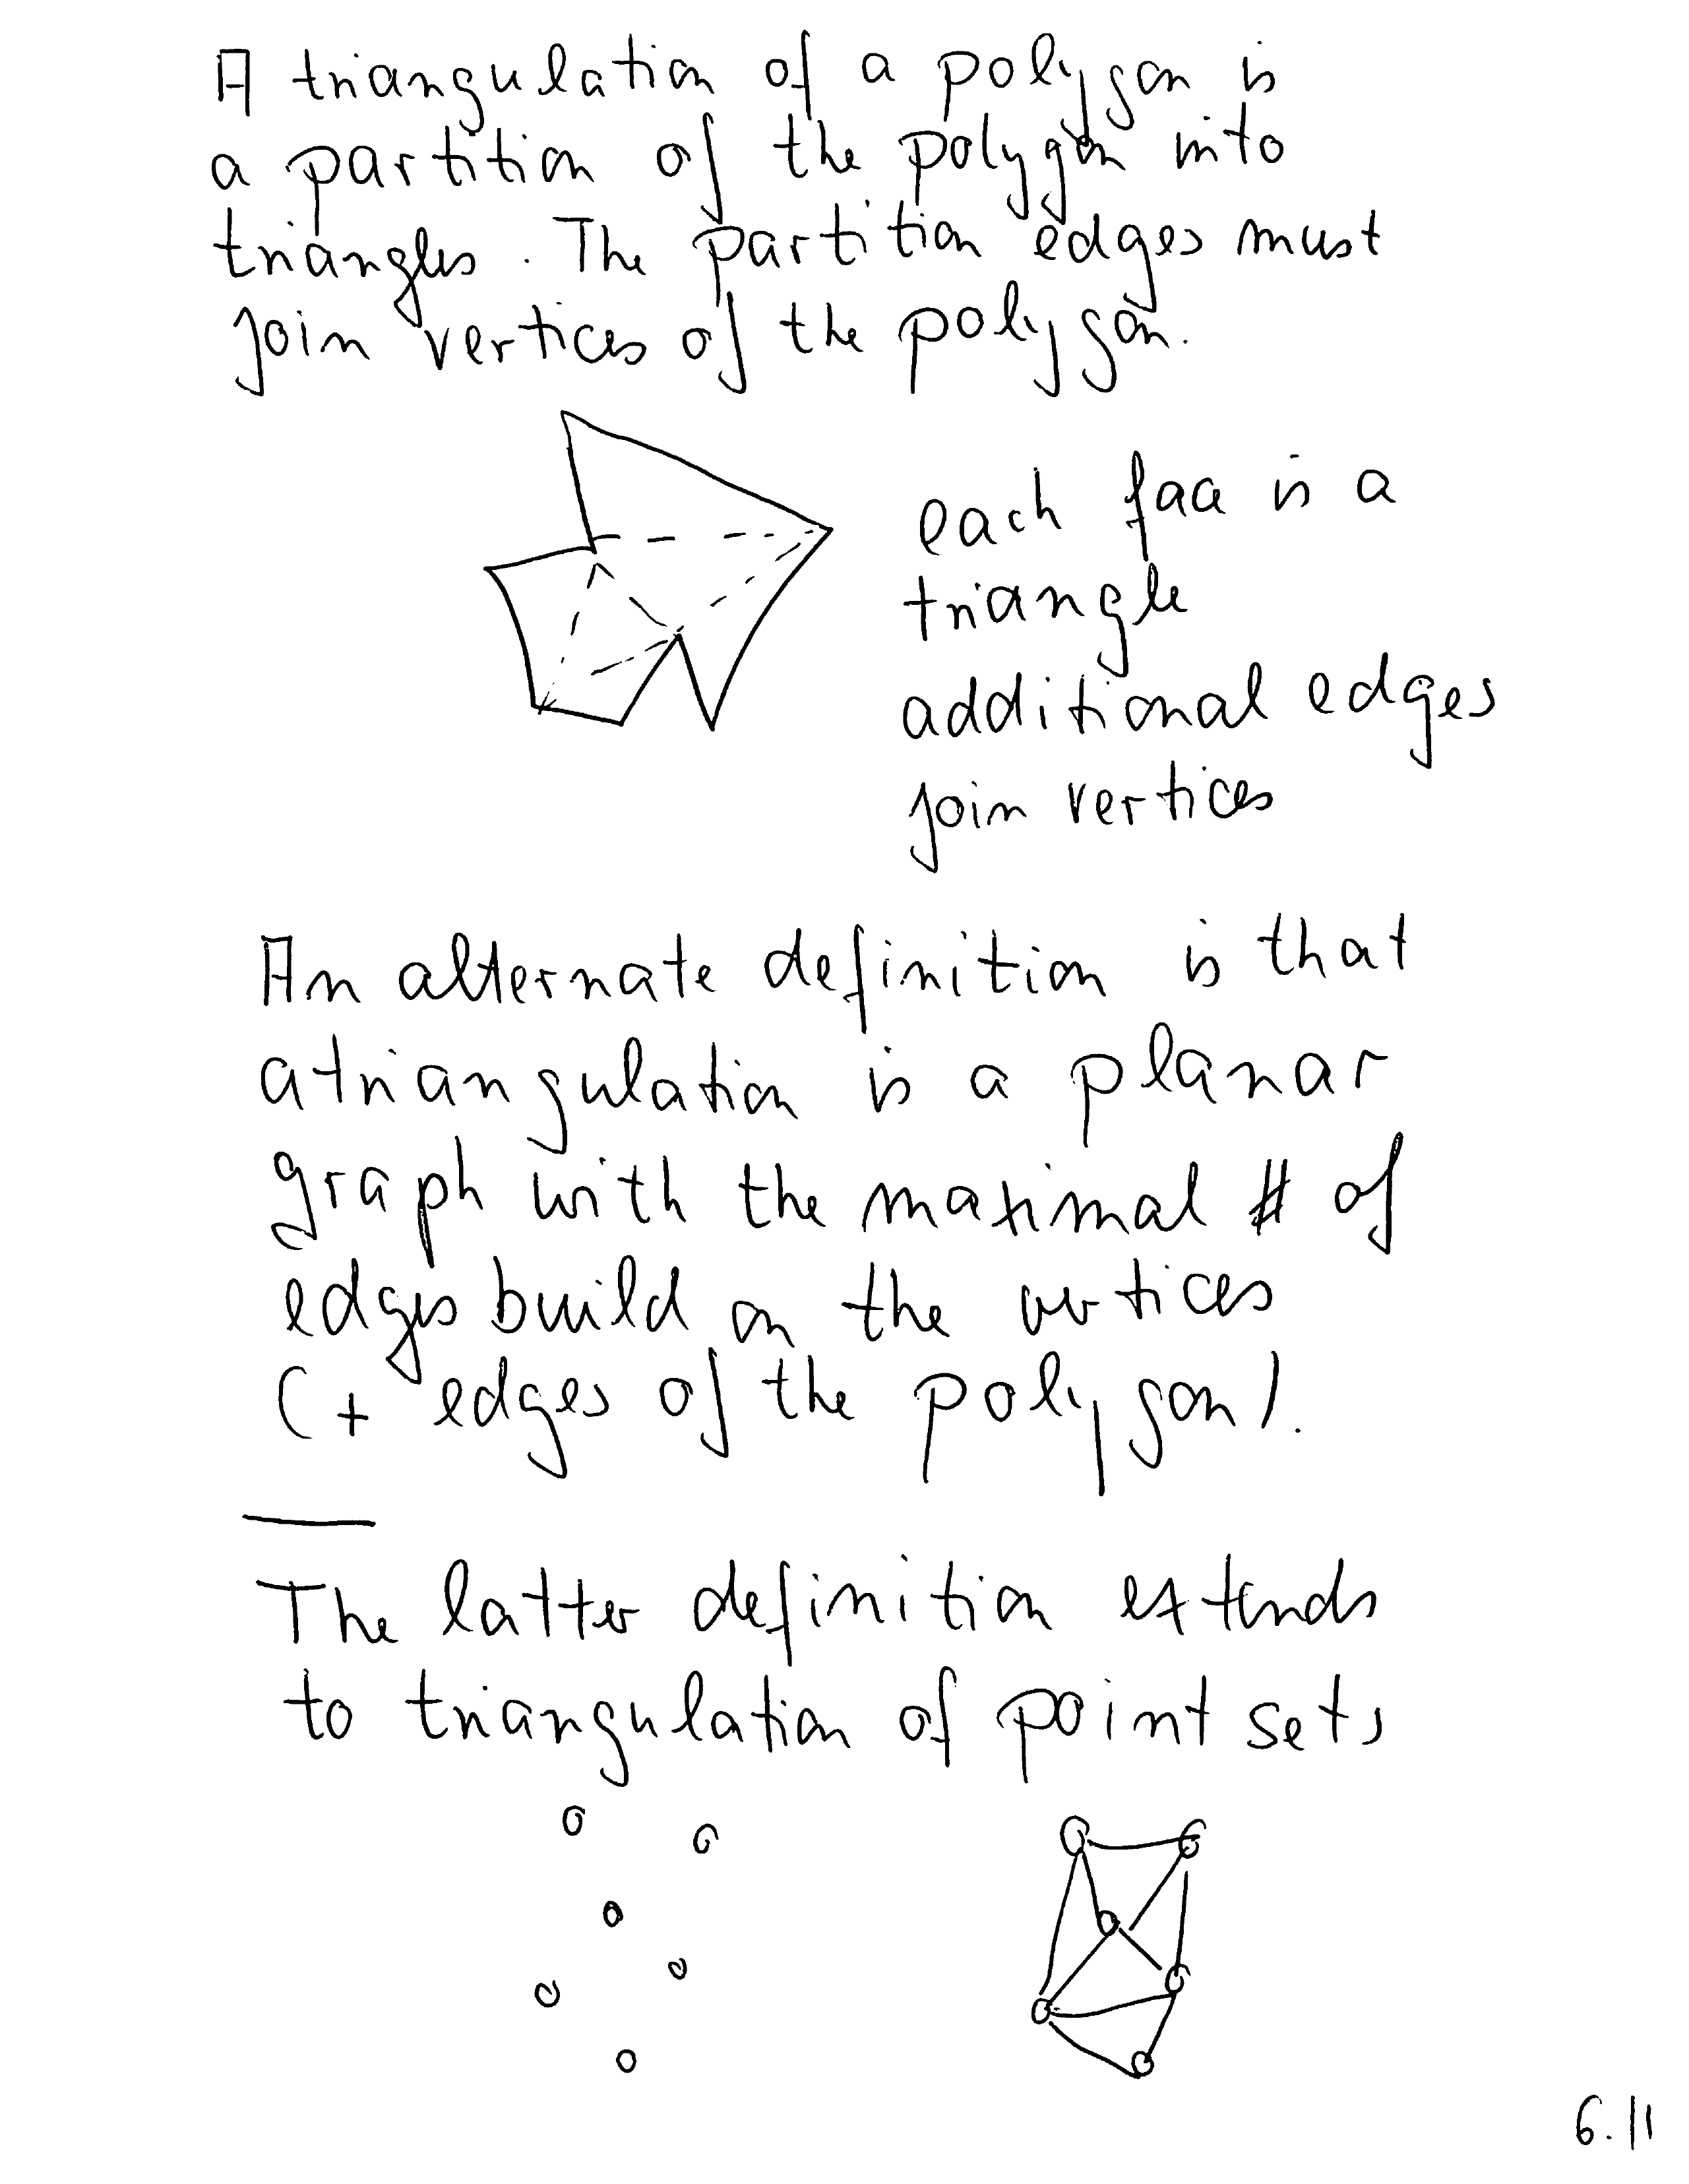 A triangulation of a polygon is
a partition of the polygon into
triangles. The partition edges must
join vertices of the polygon.
each face is a
triangle
additional edges
join vertices
An alternate definition is that
a triangulation is a planar
graph with the maximal # of
edges build on the vertices
(+ edges of the polygon).
The latter definition extends
to triangulation of point sets
6.11